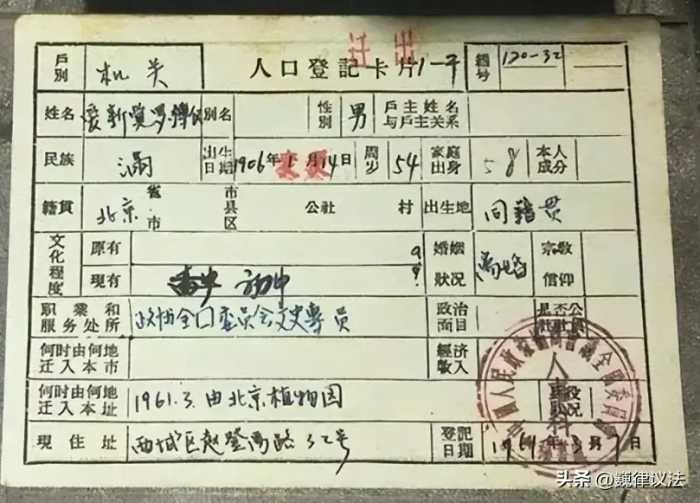 迁出
戶別 机关 人口登記卡片 1-子 編号 120-32
姓名 爱新觉罗 别名 性别 男 戶主姓名与戶主关系
民族 滿 出生日期 1906年1月14日 周岁 54 家庭出身 本人成分
籍貫 北京 省市 市县区 公社 村 出生地 同籍贯
文化程度 原有 婚姻狀况 离婚 宗敎信仰
现有 初中
职業和服务处所 政协全囗委员会文史專员 政治面目 是否公社社員
何时由何地迁入本市 經济收入
何时由何地迁入本址 1961.3.由北京植物园
现住址 西城区赵登禹路32号 登記日期 1961年3月 日
头条 @巍律议法